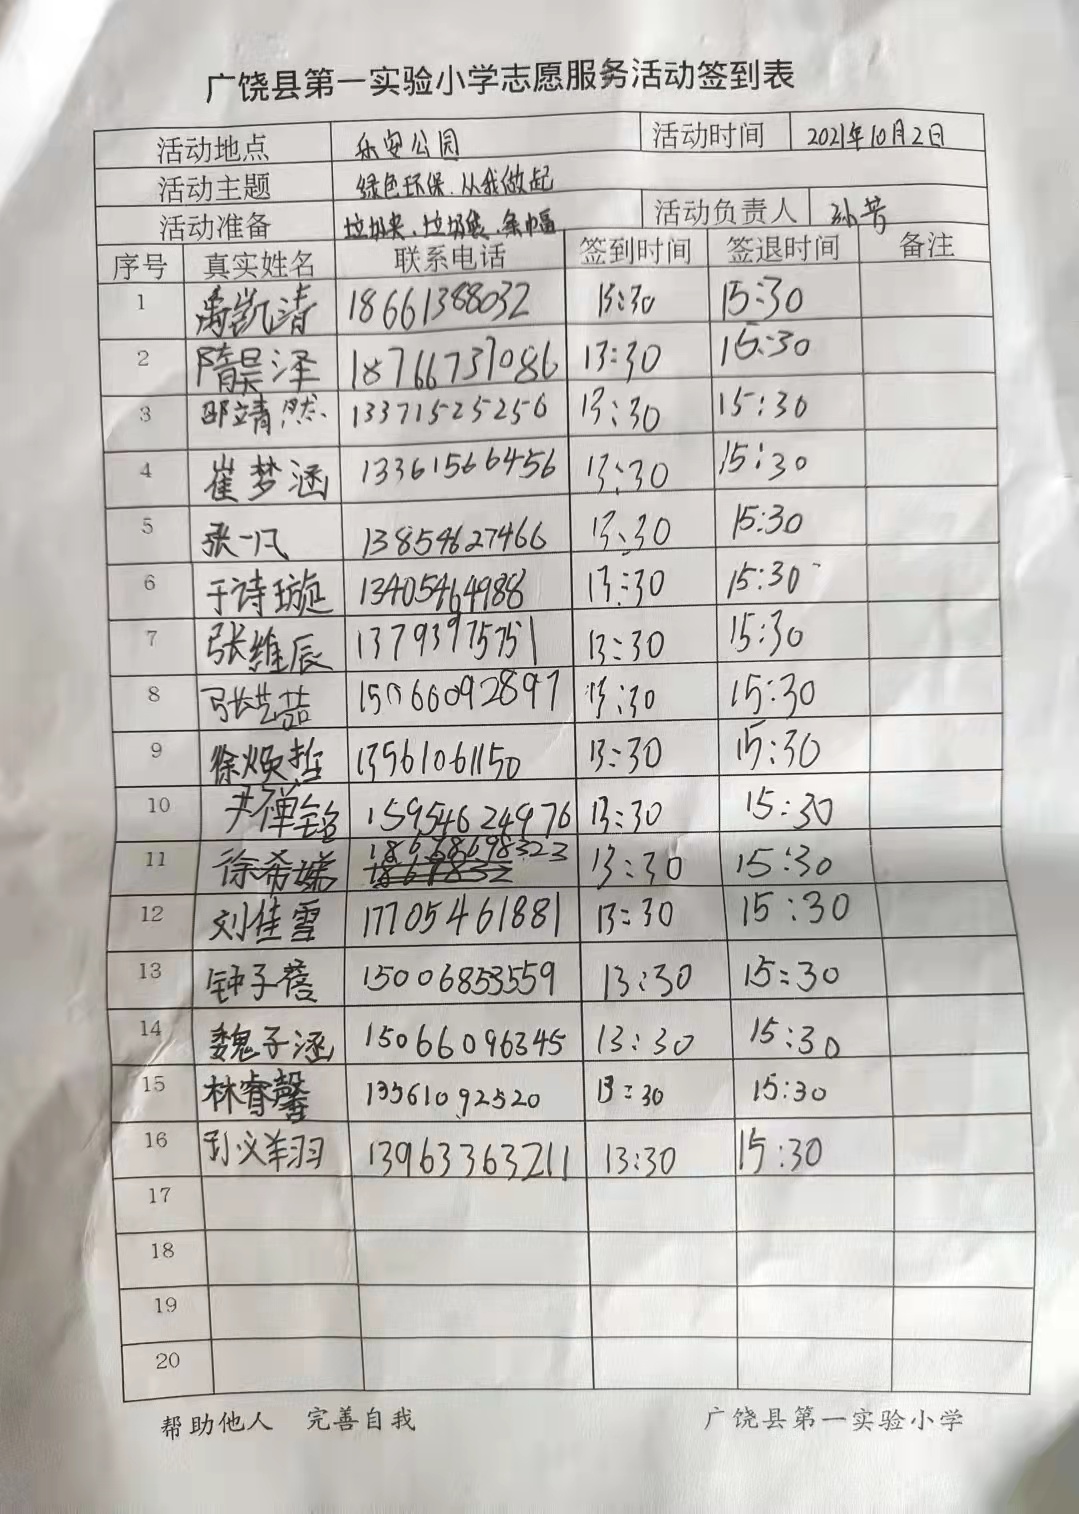 广饶县第一实验小学志愿服务活动签到表
活动地点 乐安公园 活动时间 2021年10月2日
活动主题 绿色环保.从我做起
活动准备 垃圾夹、垃圾袋、条幅 活动负责人 孙芳
序号 真实姓名 联系电话 签到时间 签退时间 备注
1 禹凯清 18661388032 13:30 15:30
2 隋昊泽 18766737086 13:30 15:30
3 邵靖然 13371525256 13:30 15:30
4 崔梦涵 13361566456 13:30 15:30
5 张一凡 13854627466 13:30 15:30
6 于诗璇 13405464988 13:30 15:30
7 张维辰 13793975751 13:30 15:30
8 张艺喆 15066092897 13:30 15:30
9 徐焕哲 13561061150 13:30 15:30
10 尹禅铭 15954624976 13:30 15:30
11 徐希 18668698323 13:30 15:30
12 刘佳雪 17705461881 13:30 15:30
13 钟子 15006853559 13:30 15:30
14 魏子涵 15066096345 13:30 15:30
15 林睿馨 13561092520 13:30 15:30
16 孙义羽 13963363211 13:30 15:30
17
18
19
20
帮助他人 完善自我 广饶县第一实验小学